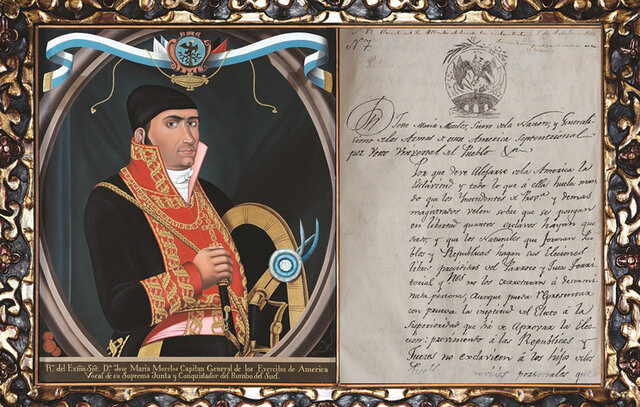 R.to del Exmo. Sôr. Dn. Jose Maria Morelos Capitan General de los Exercitos de America
Vocal de su Suprema Junta y Conquistador del Rumbo del Sud.
N 7.
Dn Jose Maria Morelos, Siervo de la Nacion, y Generali-
simo de las Armas de esta America Septentrional
por Voto Universal del Pueblo &a.
Por que debe alejarse de la America la
Esclavitud y todo lo que à ella huela man-
do que los Intendentes de Prov.a y demas
magistrados velen sobre que se pongan
en libertad quantos esclavos hayan que-
dado, y que los Naturales que forman Pue-
blos y Republicas hagan sus Elecciones
libres presididas del Parroco y Juez Terri-
torial y
no los coartaran à determi-
nada persona, aunque pueda representar
con prueba la ineptitud del Electo à la
Superioridad que ha de aprovar la Elec-
cion: previniendo à las Republicas y
Jueces no esclavicen à los hijos de los
Pueblos
personales que